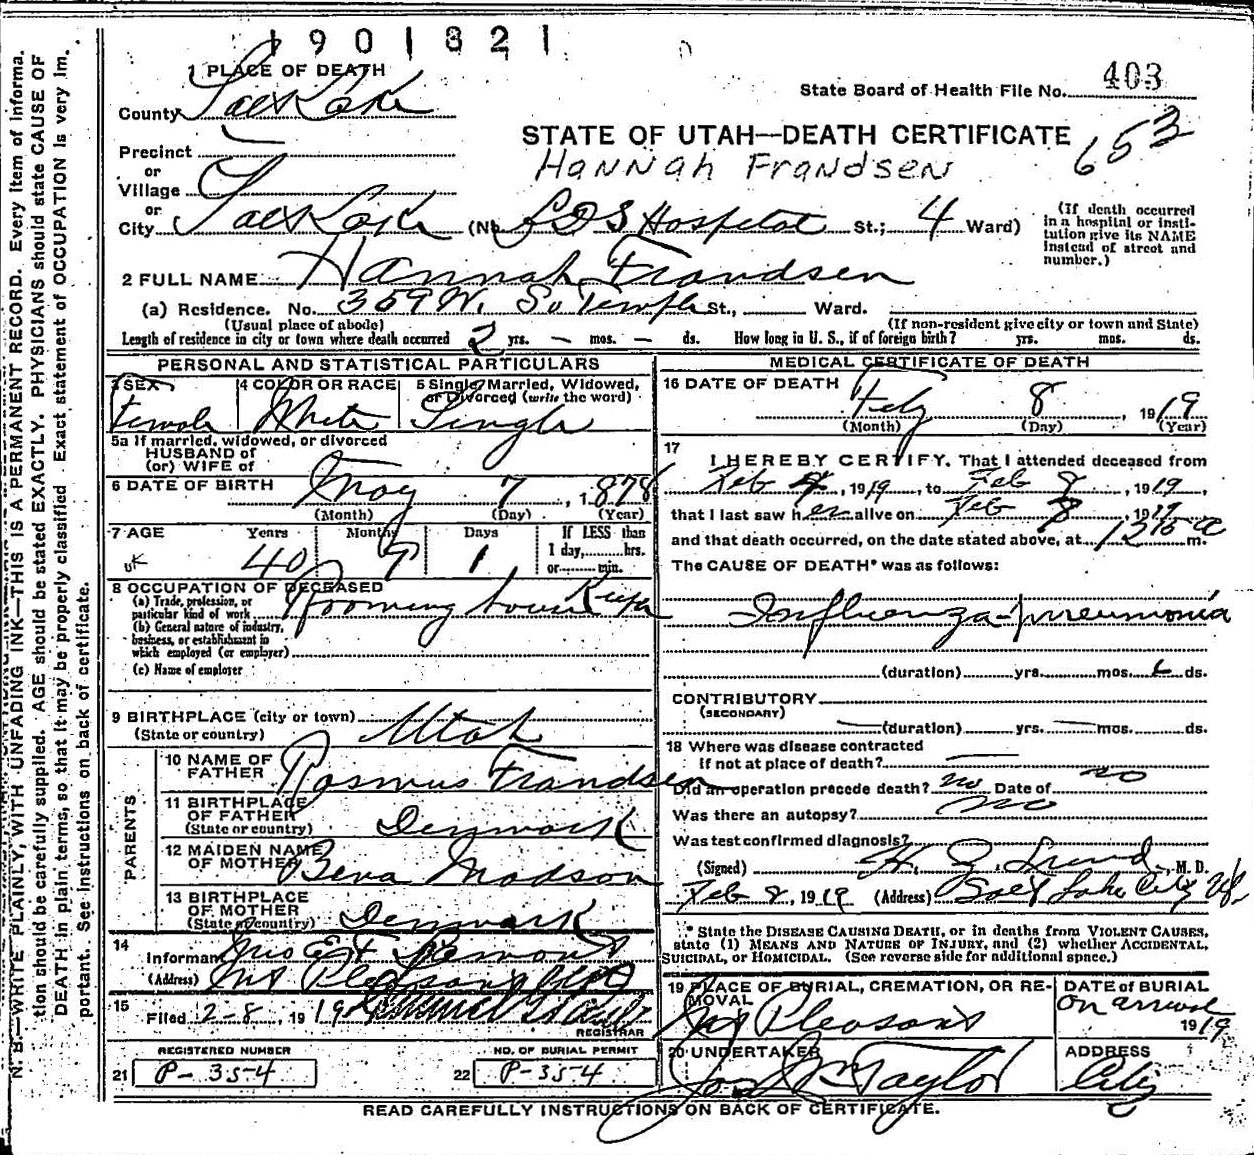 1901821
1 PLACE OF DEATH
State Board of Health File No. 403
County Salt Lake
STATE OF UTAH—DEATH CERTIFICATE
653
Precinct
Hannah Frandsen
or
Village
or
City Salt Lake (No LDS Hospital St.; 4 Ward)
(If death occurred in a hospital or insti-
tution give its NAME
instead of street and
number.)
2 FULL NAME Hannah Frandsen
(a) Residence. No. 359 W. So Temple St., Ward.
(Usual place of abode) (If non-resident give city or town and State)
Length of residence in city or town where death occurred 2 yrs. — mos. — ds. How long in U. S., if of foreign birth? yrs. mos. ds.
PERSONAL AND STATISTICAL PARTICULARS
3 SEX Female
4 COLOR OR RACE White
5 Single, Married, Widowed,
or Divorced (write the word)
Single
5a If married, widowed, or divorced
HUSBAND of
(or) WIFE of
6 DATE OF BIRTH May 7, 1878
(Month) (Day) (Year)
7 AGE Years Months Days If LESS than
1 day, hrs.
or min.
40 9 1
8 OCCUPATION OF DECEASED
(a) Trade, profession, or
particular kind of work Rooming house Keeper
(b) General nature of industry,
business, or establishment in
which employed (or employer)
(c) Name of employer
9 BIRTHPLACE (city or town)
(State or country) Utah
PARENTS
10 NAME OF
FATHER Rasmus Frandsen
11 BIRTHPLACE
OF FATHER
(State or country) Denmark
12 MAIDEN NAME
OF MOTHER Bena Madson
13 BIRTHPLACE
OF MOTHER
(State or country) Denmark
14
Informant Mrs
(Address) Mt Pleasant
15
Filed 2-8, 1919
REGISTRAR
REGISTERED NUMBER NO. OF BURIAL PERMIT
21 P-354 22 P-354
MEDICAL CERTIFICATE OF DEATH
16 DATE OF DEATH
Feby 8, 1919
(Month) (Day) (Year)
17
I HEREBY CERTIFY, That I attended deceased from
Feb 1919, to Feb 8, 1919,
that I last saw her alive on Feb 8, 1919
and that death occurred, on the date stated above, at 1215 a m.
The CAUSE OF DEATH* was as follows:
Influenza-pneumonia
(duration) yrs. mos. 6 ds.
CONTRIBUTORY
(SECONDARY)
(duration) yrs. mos. ds.
18 Where was disease contracted
if not at place of death?
Did an operation precede death? no Date of no
Was there an autopsy? no
Was test confirmed diagnosis?
(Signed) H. Z. Lund, M. D.
Feb 8, 1919 (Address) Salt Lake City Ut.
* State the DISEASE CAUSING DEATH, or in deaths from VIOLENT CAUSES,
state (1) MEANS AND NATURE OF INJURY, and (2) whether ACCIDENTAL,
SUICIDAL, or HOMICIDAL. (See reverse side for additional space.)
19 PLACE OF BURIAL, CREMATION, OR RE-
MOVAL
Mt Pleasant
DATE of BURIAL
on arrival
1919
20 UNDERTAKER
Jos Wm Taylor
ADDRESS
City
READ CAREFULLY INSTRUCTIONS ON BACK OF CERTIFICATE.
N. B.—WRITE PLAINLY, WITH UNFADING INK—THIS IS A PERMANENT RECORD. Every item of informa-
tion should be carefully supplied. AGE should be stated EXACTLY. PHYSICIANS should state CAUSE OF
DEATH in plain terms, so that it may be properly classified. Exact statement of OCCUPATION is very im-
portant. See instructions on back of certificate.